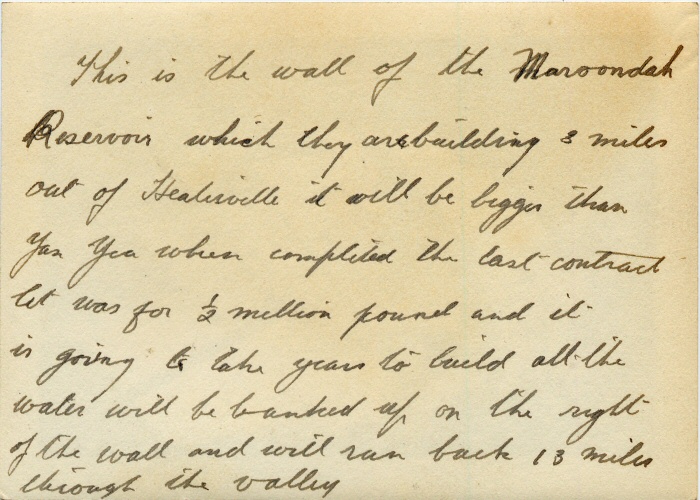 This is the wall of the Maroondah
Reservoir which they are building 3 miles
out of Healesville it will be bigger than
Yan Yea when completed the last contract
let was for ½ million pound and it
is going to take years to build all the
water will be banked up on the right
of the wall and will run back 13 miles
through the valley